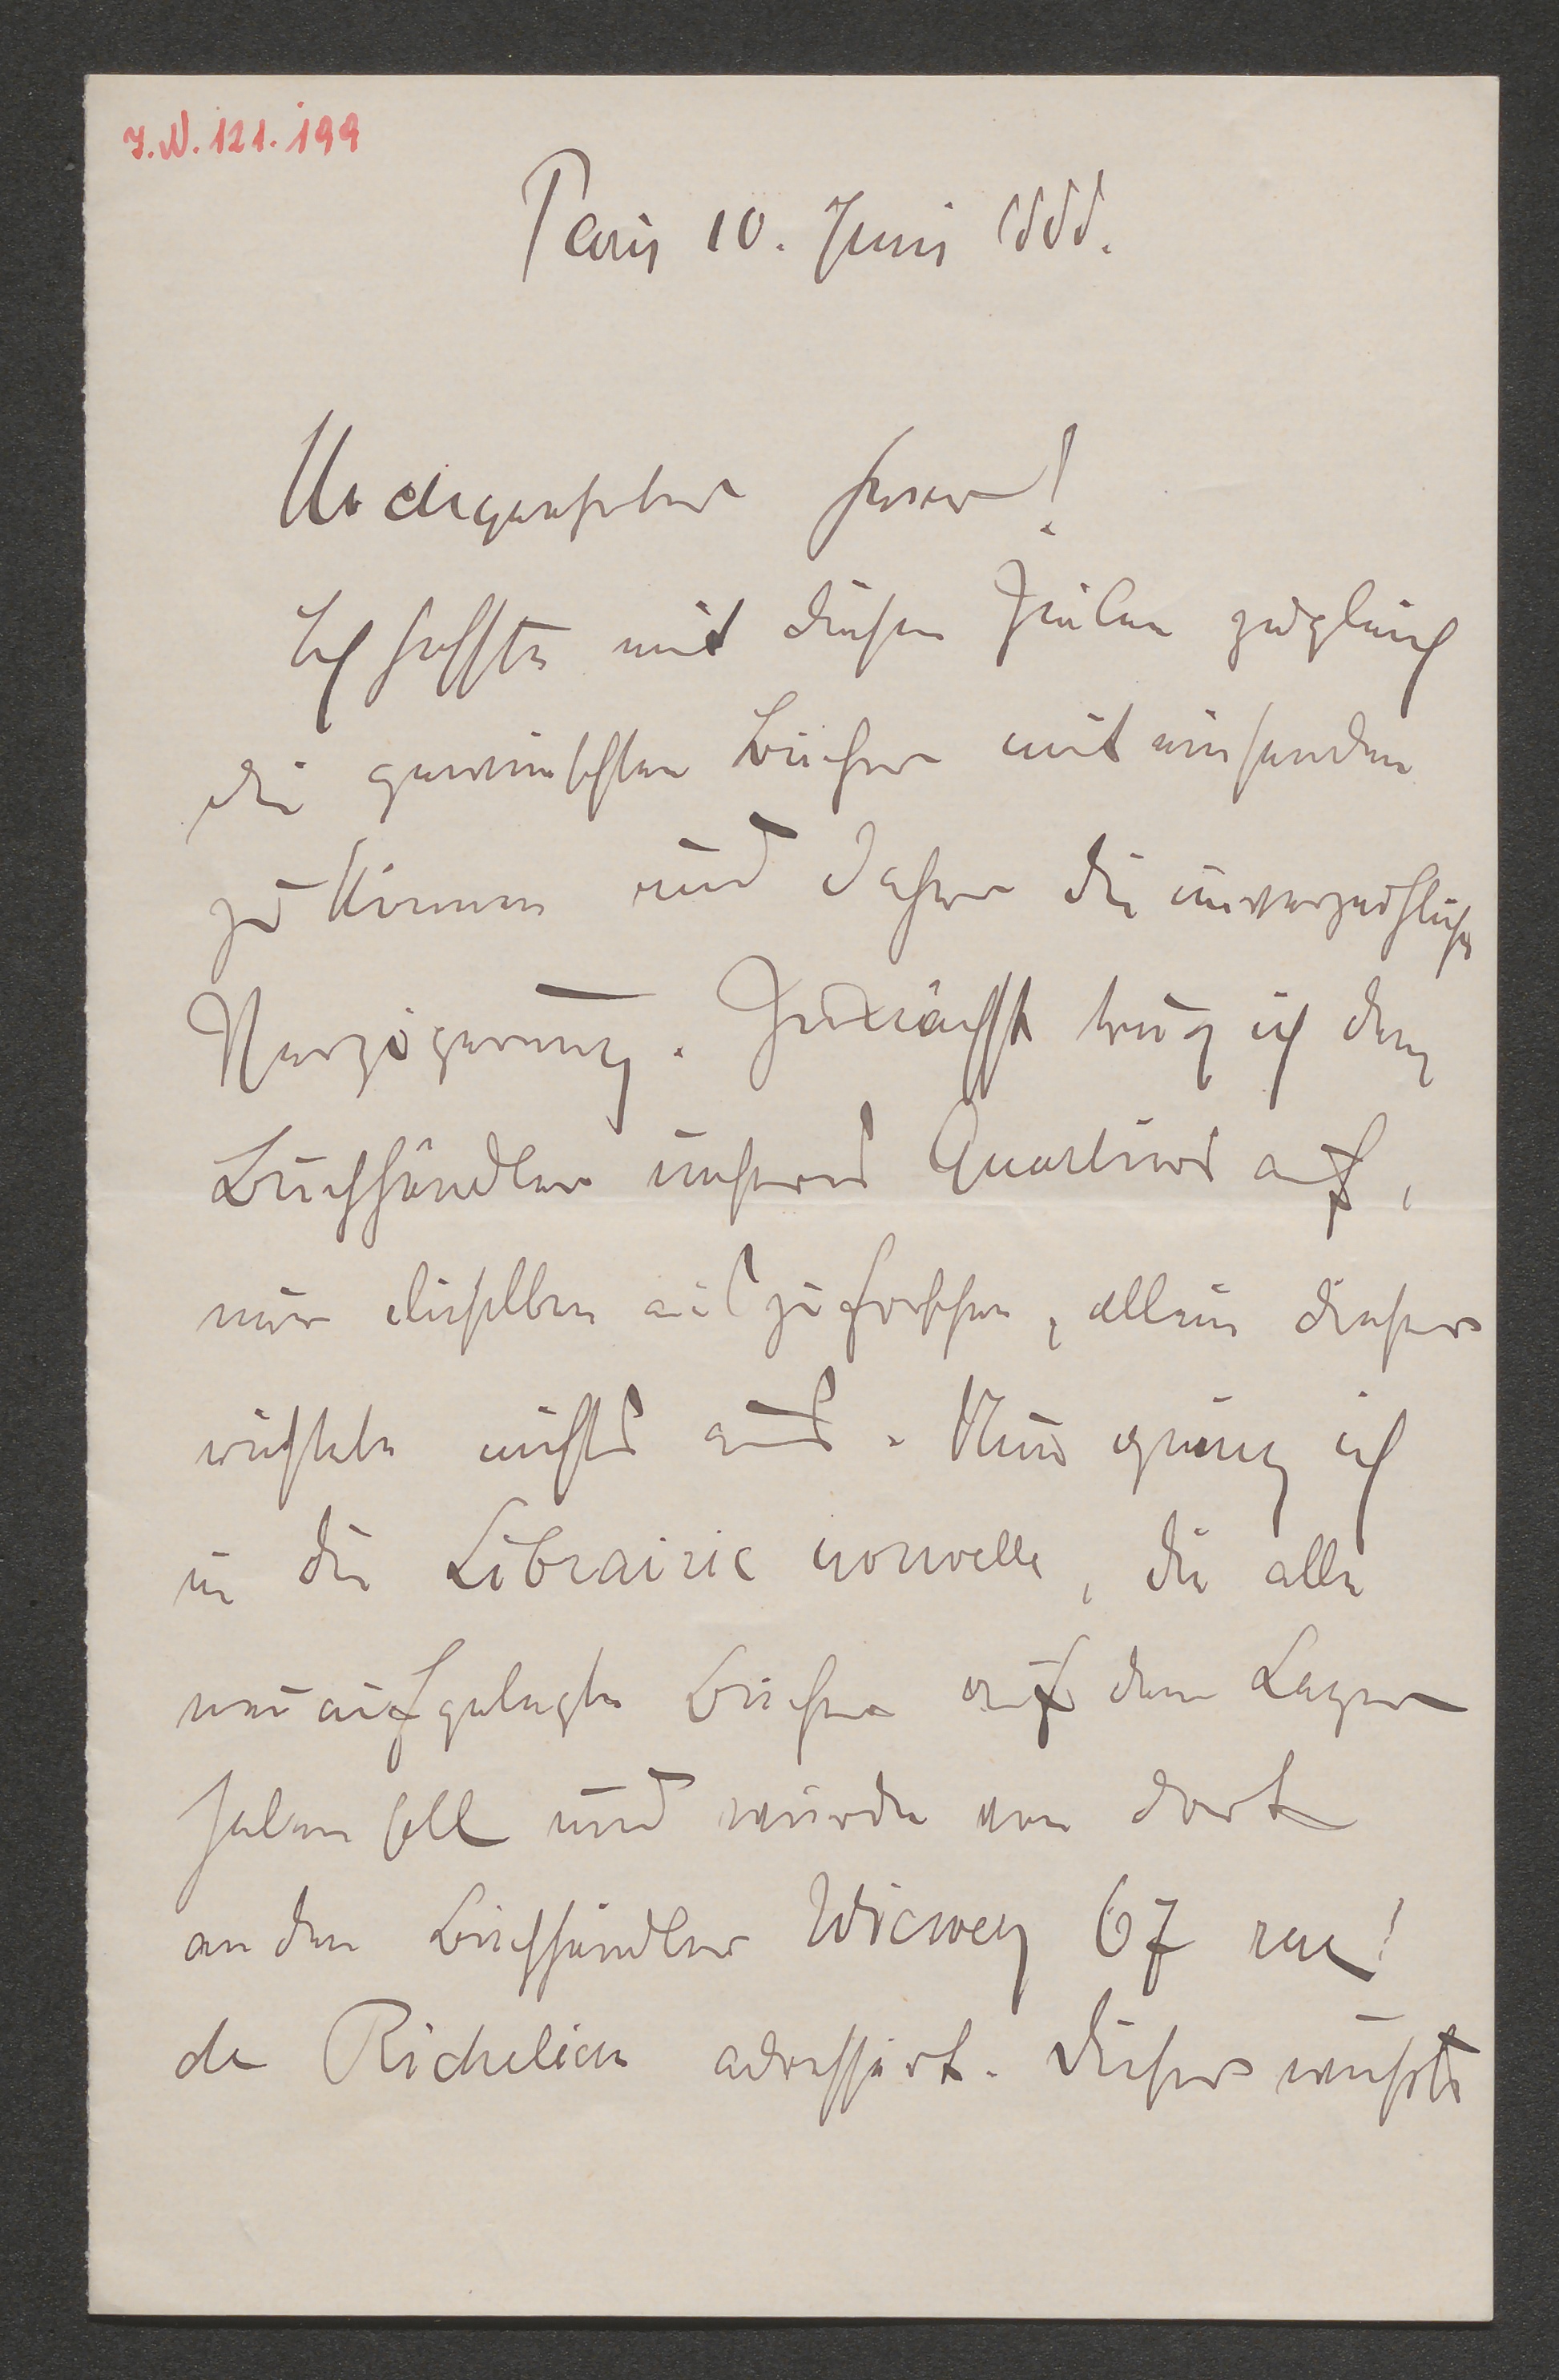 J.N. 121.199
Paris 10. Juni 1888.
Hochgeehrter Herr!
Ich hoffte mit diesen Zeilen zugleich
die gewünschten Bücher mit einsenden
zu können und daher die unverzeihliche
Verzögerung. Zunächst trug ich dem
Buchhändler unseres Quartiers auf,
mir dieselben auszuforschen, allein dieser
richtete nichts aus. Nun ging ich
in die Librairie nouvelle, die alle
neuaufgelegte Bücher auf dem Lager
haben soll und wurde von dort
an den Buchhändler Wieweg 67 rue
de Richelieu adressirt. Dieser wußte